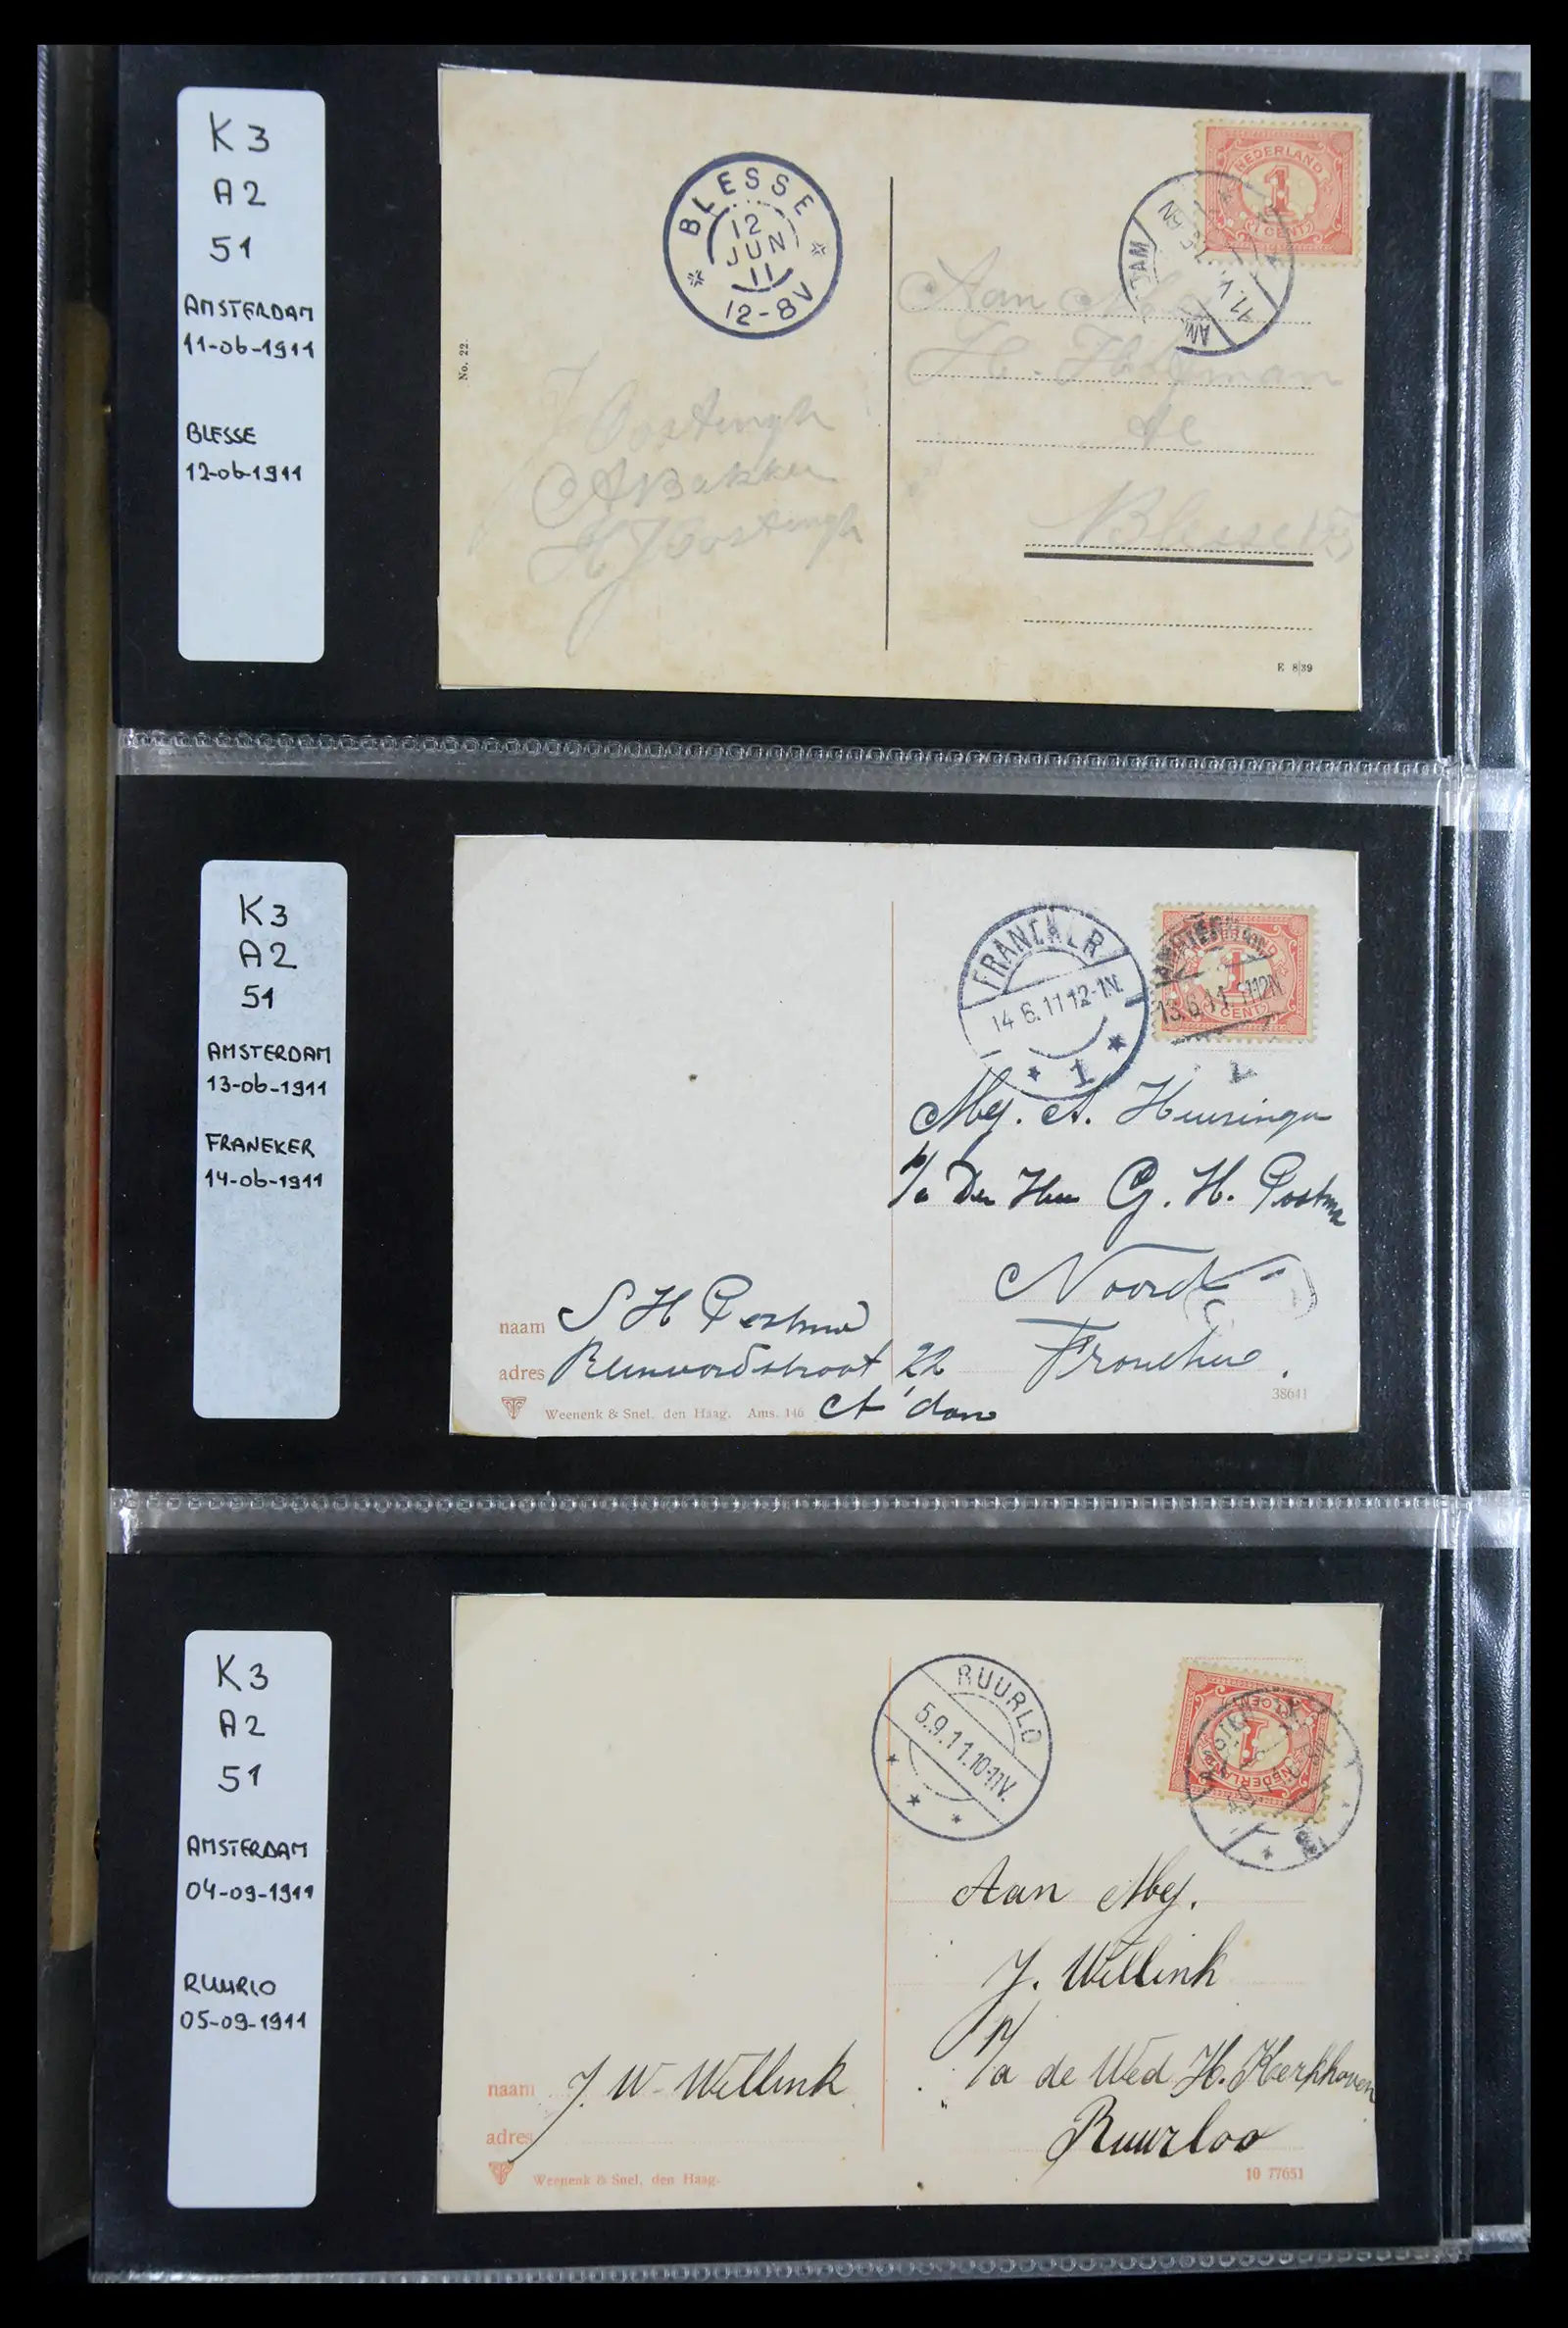 K3
A2
51
AMSTERDAM
11-06-1911
BLESSE
12-06-1911
BLESSE
12
JUN
11
12-8V
NEDERLAND
1
1 CENT
AM DAM
No. 22.
J Oostingh
A Bakker
H J Oostingh
Aan
H.
de
Blesse
E 8/39
K3
A2
51
AMSTERDAM
13-06-1911
FRANEKER
14-06-1911
FRANEKER
14.6.11 12-1N.
1
1
CENT
13.6.11. 1112N
Mej. A. Huizinga
p/a Den Heer G. H. Postma
Noord
Franeker.
naam S H Postma
adres Reinwardtstraat 22
A'dam
Weenenk & Snel, den Haag. Ams. 146
38641
K3
A2
51
AMSTERDAM
04-09-1911
RUURLO
05-09-1911
RUURLO
5.9.11.10-11V.
NEDERLAND
1
CENT
Aan Mej.
J. Willink
p/a de Wed H. Kerkhoven
Ruurloo
naam J. W. Willink
adres
Weenenk & Snel, den Haag.
10 77651